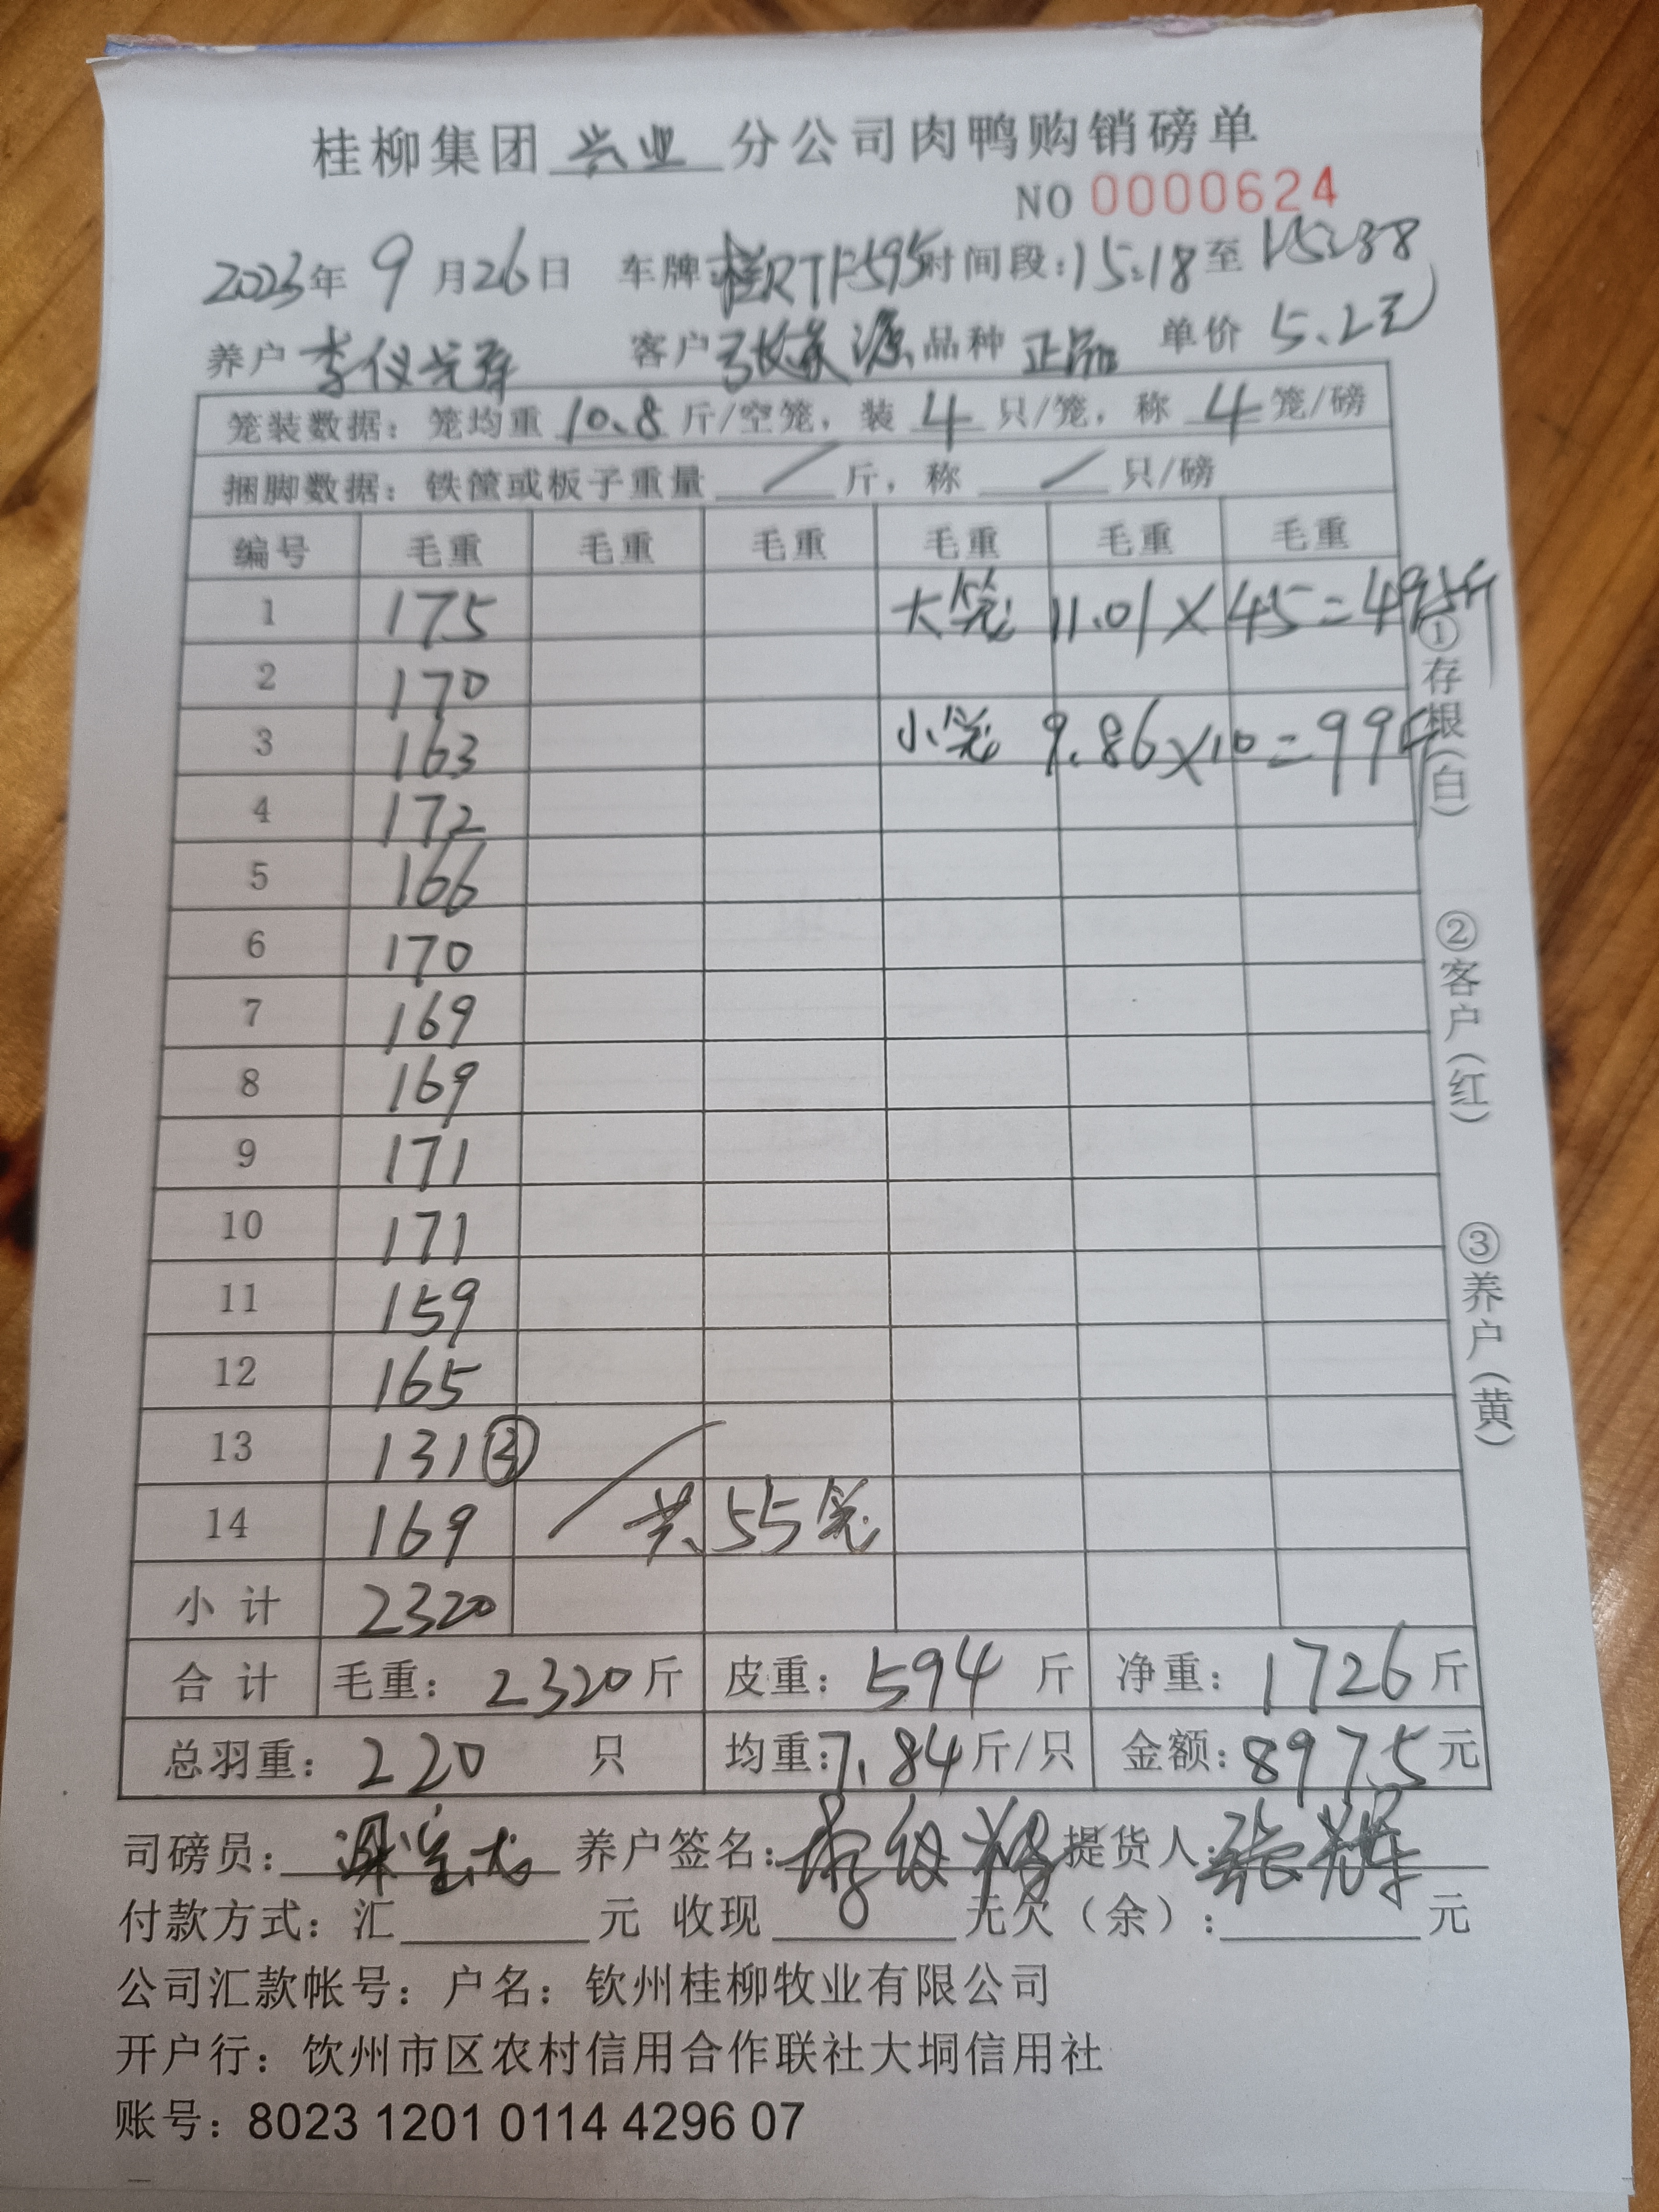 桂柳集团 兴业 分公司肉鸭购销磅单
NO 0000624
2023年 9 月 26 日 车牌 桂RTF595 时间段:15:18 至 15:38
养户 李仪 客户 张 源 品种 正品 单价 5.2元
笼装数据: 笼均重 10.8 斤/空笼, 装 4 只/笼, 称 4 笼/磅
捆脚数据: 铁筐或板子重量 / 斤, 称 / 只/磅
编号 毛重 毛重 毛重 毛重 毛重 毛重
1 175 大笼 11.01×45=495斤
2 170
3 163 小笼 9.86×10=99斤
4 172
5 166
6 170
7 169
8 169
9 171
10 171
11 159
12 165
13 131③
14 169 共55笼
小计 2320
合计 毛重: 2320 斤 皮重: 594 斤 净重: 1726 斤
总羽重: 220 只 均重: 7.84 斤/只 金额: 8975 元
司磅员: 养户签名: 李仪 提货人: 张辉
付款方式: 汇 元 收现 元欠(余): 元
公司汇款帐号: 户名: 钦州桂柳牧业有限公司
开户行: 钦州市区农村信用合作联社大垌信用社
账号: 8023 1201 0114 4296 07
①存根(白)
②客户(红)
③养户(黄)